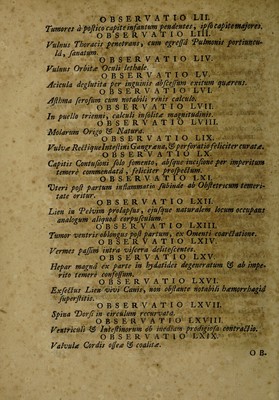 OBSERVATIO LII.
Tumores à postico capite infantum pendentes, ipso capite majores.
OBSERVATIO LIII.
Vulnus Thoracis penetrans, cum egressa Pulmonis portiuncula, sanatum.
OBSERVATIO LIV.
Vulnus Orbitæ Oculi lethale.
OBSERVATIO LV.
Acicula deglutita per inguinis abscessum exitum quærens.
OBSERVATIO LVI.
Asthma serosum cum notabili renis calculo.
OBSERVATIO LVII.
In puello trienni, calculi insolitæ magnitudinis.
OBSERVATIO LVIII.
Molarum Origo & Natura.
OBSERVATIO LIX.
Vulvæ Rectique Intestini Gangræna, & perforatio feliciter curatæ.
OBSERVATIO LX.
Capitis Contusioni solo fomento, absque incisione per imperitum
temerè commendatâ, feliciter prospectum.
OBSERVATIO LXI.
Uteri post partum inflammatio subinde ab Obstetricum temeri-
tate oritur.
OBSERVATIO LXII.
Lien in Pelvim prolapsus, ejusque naturalem locum occupans
analogum aliquod corpusculum.
OBSERVATIO LXIII.
Tumor ventris oblongus post partum, ex Omenti coarctatione.
OBSERVATIO LXIV.
Vermes passim intra viscera delitescentes.
OBSERVATIO LXV.
Hepar magnâ ex parte in hydatides degeneratum & ab impe-
rito temerè confossum.
OBSERVATIO LXVI.
Exsectus Lien vivi Canis, non obstante notabili hæmorrhagiâ
superstitis.
OBSERVATIO LXVII.
Spina Dorsi in circulum recurvata.
OBSERVATIO LXVIII.
Ventriculi & Intestinorum ob inediam prodigiosa contractio.
OBSERVATIO LXIX.
Valvulæ Cordis osseæ & coalitæ.
OB.